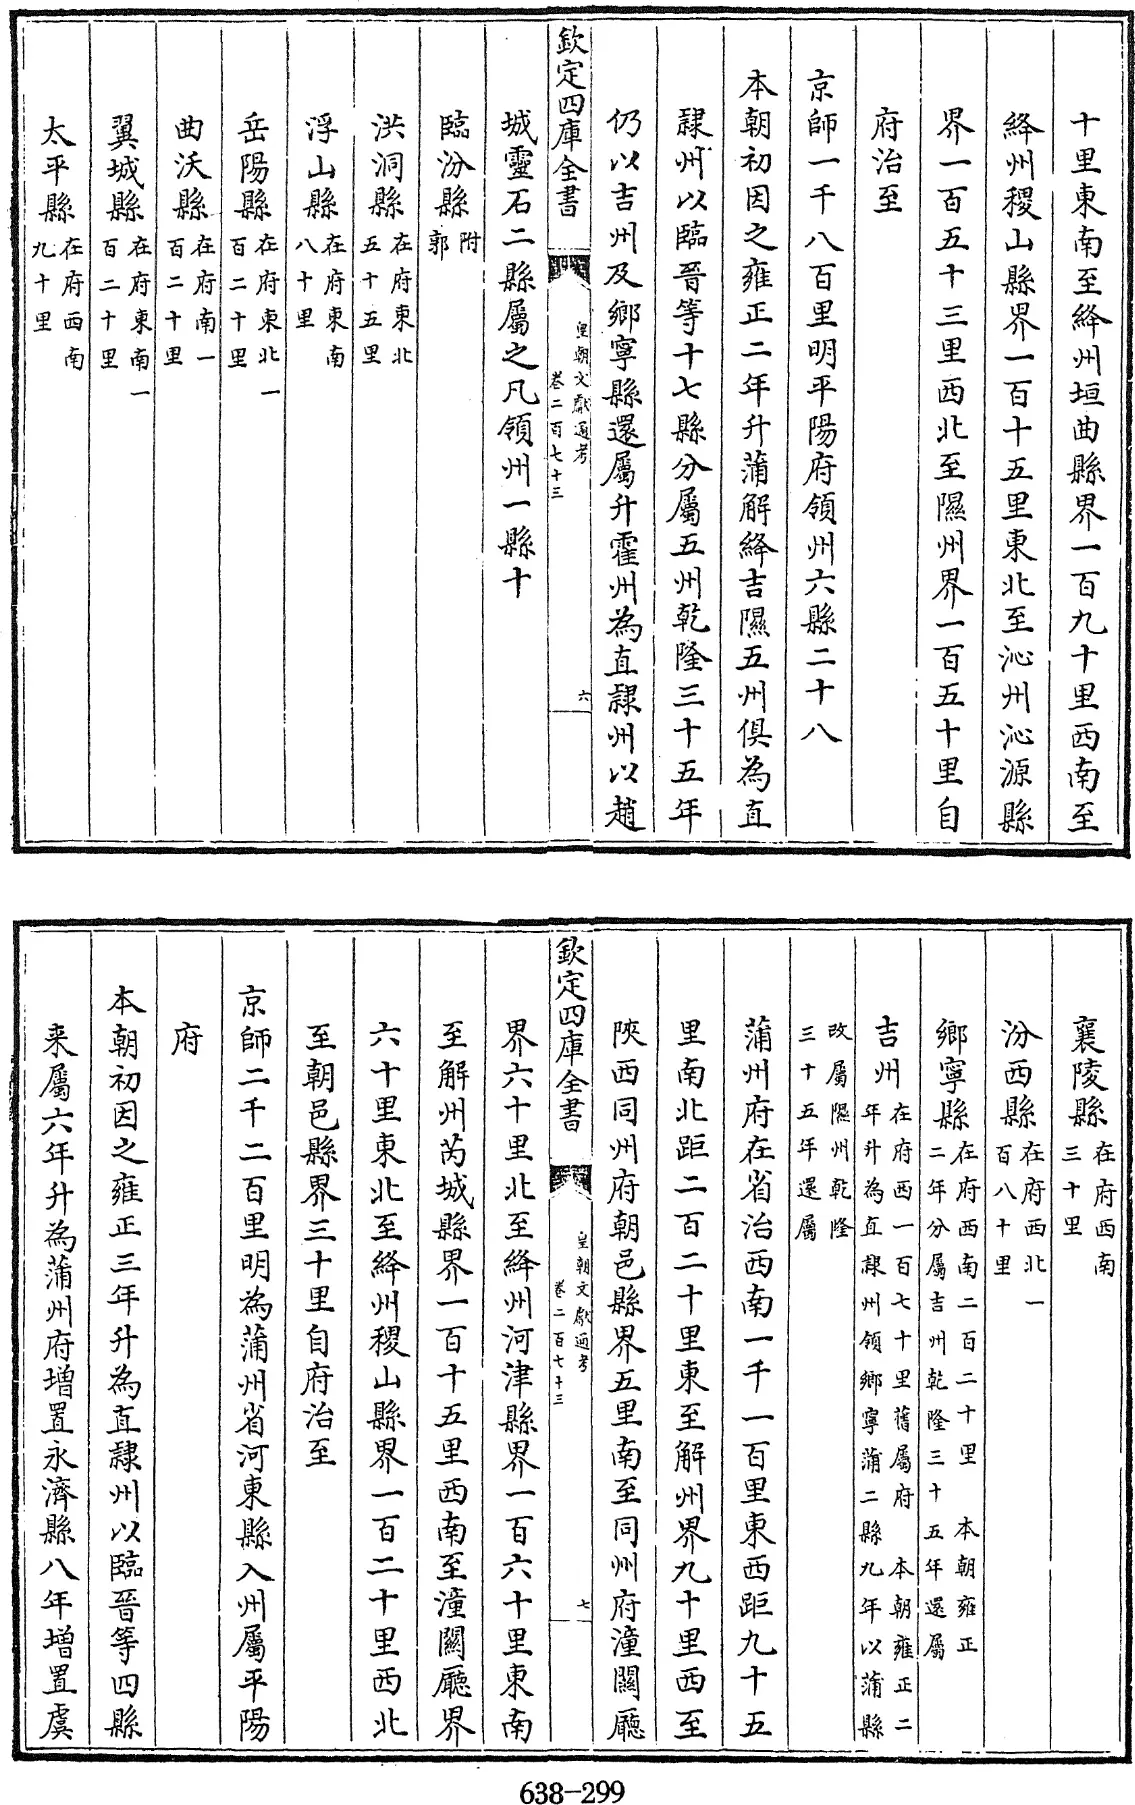 十里東南至絳州垣曲縣界一百九十里西南至
絳州稷山縣界一百十五里東北至沁州沁源縣
界一百五十三里西北至隰州界一百五十里自
府治至
京師一千八百里明平陽府領州六縣二十八
本朝初因之雍正二年升蒲解絳吉隰五州俱為直
隸州以臨晉等十七縣分屬五州乾隆三十五年
仍以吉州及鄉寧縣還屬升霍州為直隸州以趙
欽定四庫全書
皇朝文獻通考
卷二百七十三
六
城靈石二縣屬之凡領州一縣十
臨汾縣附
郭
洪洞縣在府東北
五十五里
浮山縣在府東南
八十里
岳陽縣在府東北一
百二十里
曲沃縣在府南一
百二十里
翼城縣在府東南一
百二十里
太平縣在府西南
九十里
襄陵縣在府西南
三十里
汾西縣在府西北一
百八十里
鄉寧縣在府西南二百二十里 本朝雍正
二年分屬吉州乾隆三十五年還屬
吉州在府西一百七十里舊屬府 本朝雍正二
年升為直隸州領鄉寧蒲二縣九年以蒲縣
改屬隰州乾隆
三十五年還屬
蒲州府在省治西南一千一百里東西距九十五
里南北距二百二十里東至解州界九十里西至
陝西同州府朝邑縣界五里南至同州府潼關廳
欽定四庫全書
皇朝文獻通考
卷二百七十三
七
界六十里北至絳州河津縣界一百六十里東南
至解州芮城縣界一百十五里西南至潼關廳界
六十里東北至絳州稷山縣界一百二十里西北
至朝邑縣界三十里自府治至
京師二千二百里明為蒲州省河東縣入州屬平陽
府
本朝初因之雍正三年升為直隸州以臨晉等四縣
来屬六年升為蒲州府增置永濟縣八年增置虞
638-299